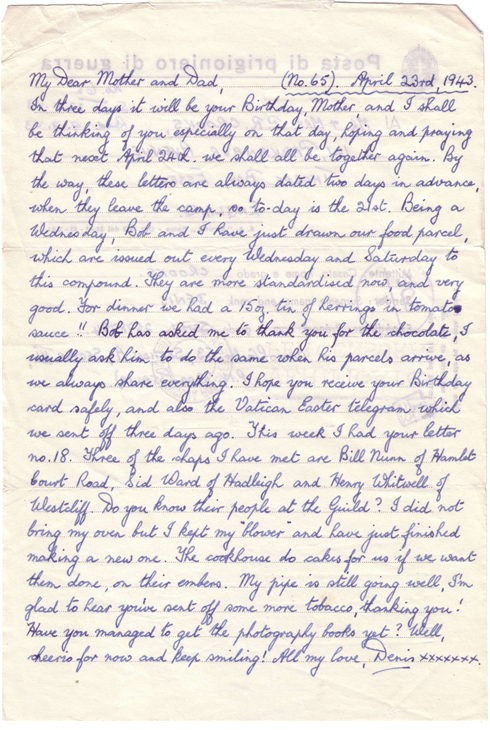 Posta di prigioniero di guerra
My Dear Mother and Dad, (No.65). April 23rd, 1943.
In three days it will be your Birthday, Mother, and I shall
be thinking of you especially on that day, hoping and praying
that next April 24th. we shall all be together again. By
the way, these letters are always dated two days in advance,
when they leave the camp, so to-day is the 21st. Being a
Wednesday, Bob and I have just drawn our food parcel,
which are issued out every Wednesday and Saturday to
this compound. They are more standardised now, and very
good. For dinner we had a 15oz. tin of herrings in tomato
sauce!! Bob has asked me to thank you for the chocolate, I
usually ask him to do the same when his parcels arrive, as
we always share everything. I hope you receive your Birthday
card safely, and also the Vatican Easter telegram which
we sent off three days ago. This week I had your letter
no.18. Three of the chaps I have met are Bill Nunn of Hamlet
Court Road, Sid Ward of Hadleigh and Henry Whitwell of
Westcliff. Do you know their people at the Guild? I did not
bring my oven but I kept my "blower" and have just finished
making a new one. The cookhouse do cakes for us if we want
them done, on their embers. My pipe is still going well, I'm
glad to hear you've sent off some more tobacco, thanking you!
Have you managed to get the photography books yet? Well,
cheerio for now and keep smiling! All my love, Denis xxxxxxx.